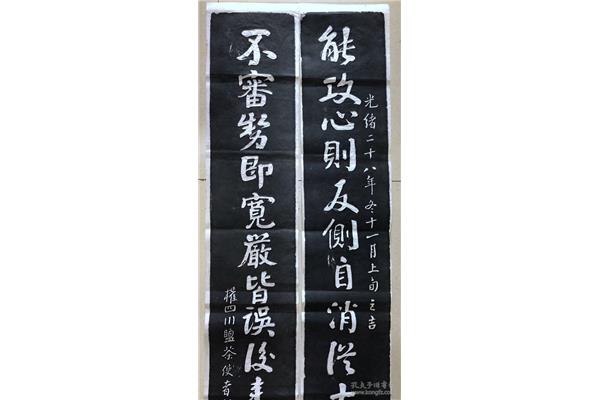 能攻心則反側自消從
光緒二十八年冬十一月上旬之吉
不審勢即寬嚴皆誤後
權四川鹽茶使者
孔夫子旧书网